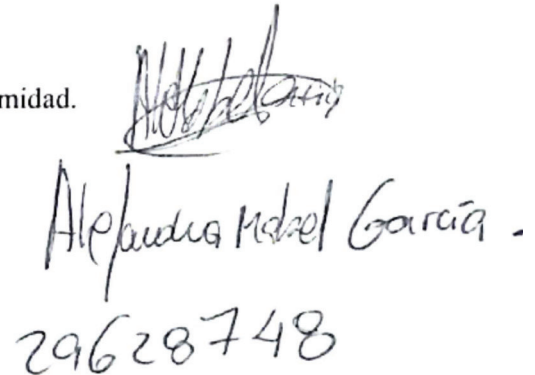 midad.
Alejandra Mabel García.
29628748